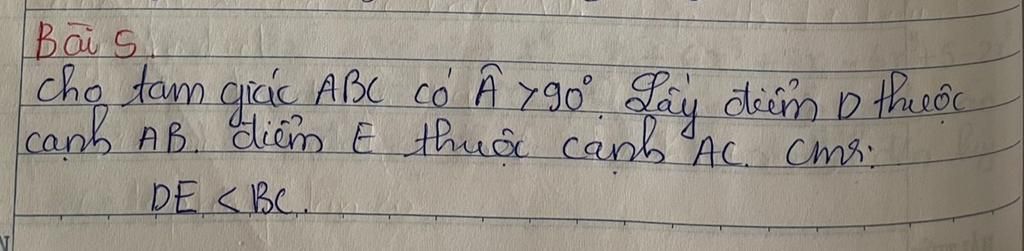 Bài 5.
Cho tam giác ABC có Â > 90°. Lấy điểm D thuộc
cạnh AB. điểm E thuộc cạnh AC. Cmr:
DE < BC.